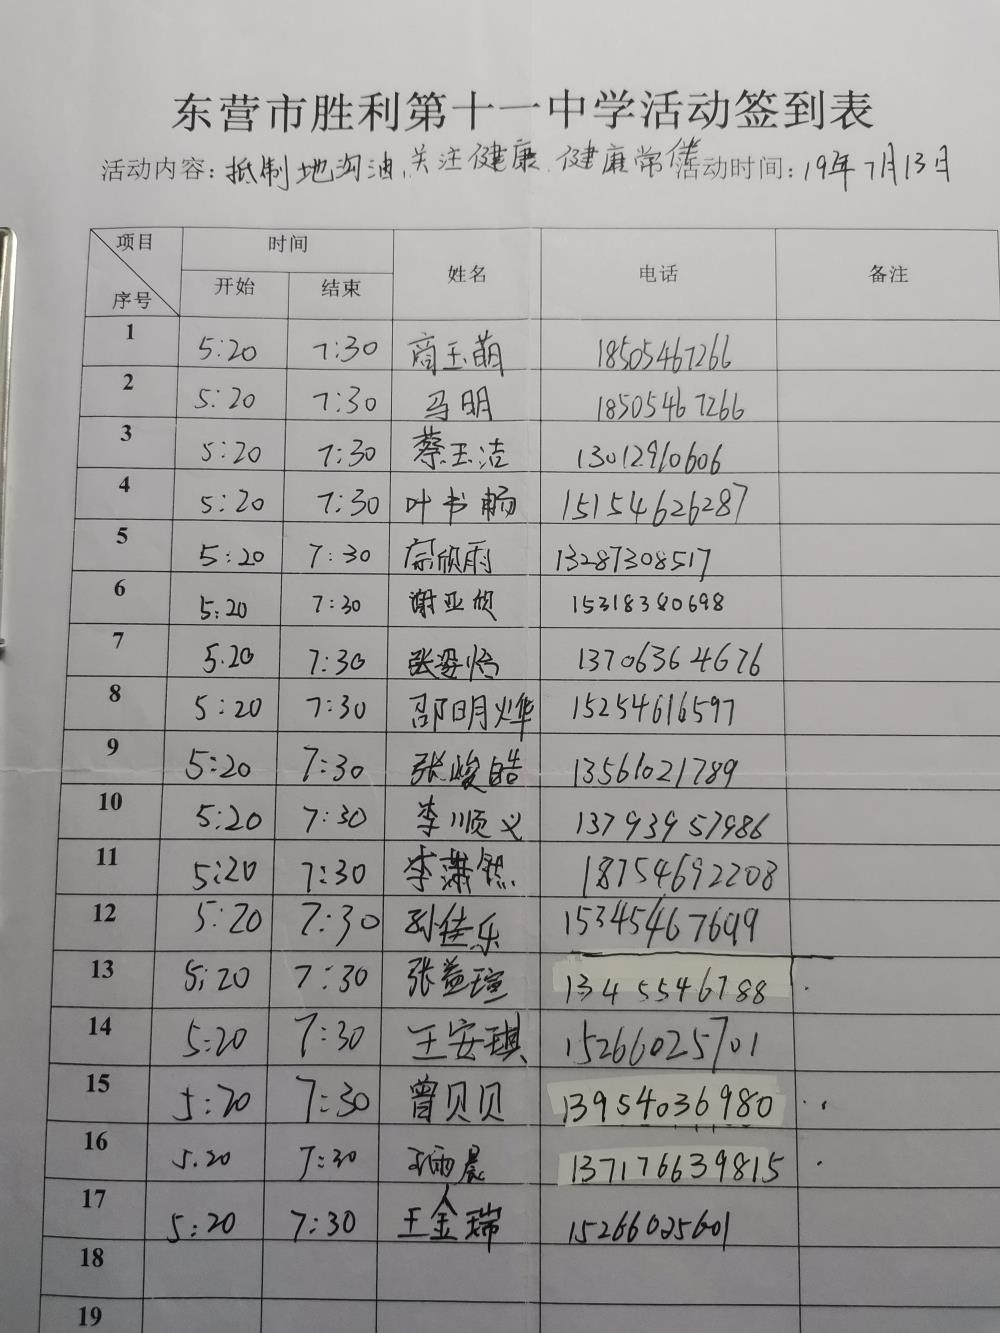 东营市胜利第十一中学活动签到表
活动内容: 抵制地沟油、关注健康、健康常伴 活动时间: 19年7月13日
项目 时间 姓名 电话 备注
序号 开始 结束
1 5:20 7:30 商玉萌 18505467266
2 5:20 7:30 马明 18505467266
3 5:20 7:30 蔡玉洁 13012910606
4 5:20 7:30 叶书畅 15154626287
5 5:20 7:30 宗欣雨 13287308517
6 5:20 7:30 谢亚欣 15318380698
7 5.20 7:30 张姿怡 13706364676
8 5:20 7:30 邵明月烨 15254616597
9 5:20 7:30 张峻皓 13561021789
10 5:20 7:30 李顺义 13793957986
11 5:20 7:30 李潇然 18754692208
12 5:20 7:30 孙佳乐 15345467699
13 5:20 7:30 张益瑄 13455546788
14 5:20 7:30 王安琪 15266025701
15 5:20 7:30 曾贝贝 13954036980
16 5.20 7:30 王雨晨 137176639815
17 5:20 7:30 王金瑞 15266025601
18
19